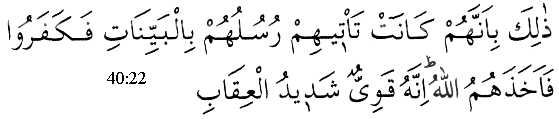 ذٰلِكَ بِاَنَّهُمْ كَانَتْ تَاْتِيهِمْ رُسُلُهُمْ بِالْبَيِّنَاتِ فَكَفَرُوا
فَاَخَذَهُمُ اللّٰهُ ؕ اِنَّهُ قَوِىٌّ شَدِيدُ الْعِقَابِ 40:22